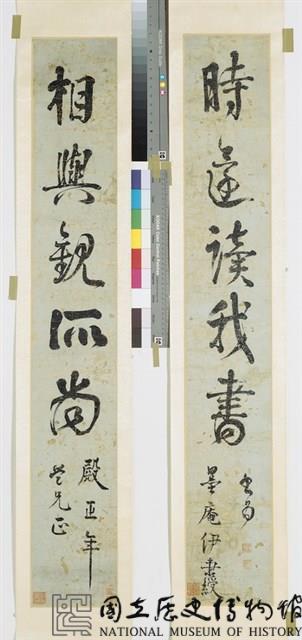 時還讀我書
墨庵伊秉綬
相與觀所尚
殿正年
兄正
國立歷史博物館
NATIONAL MUSEUM OF HISTORY